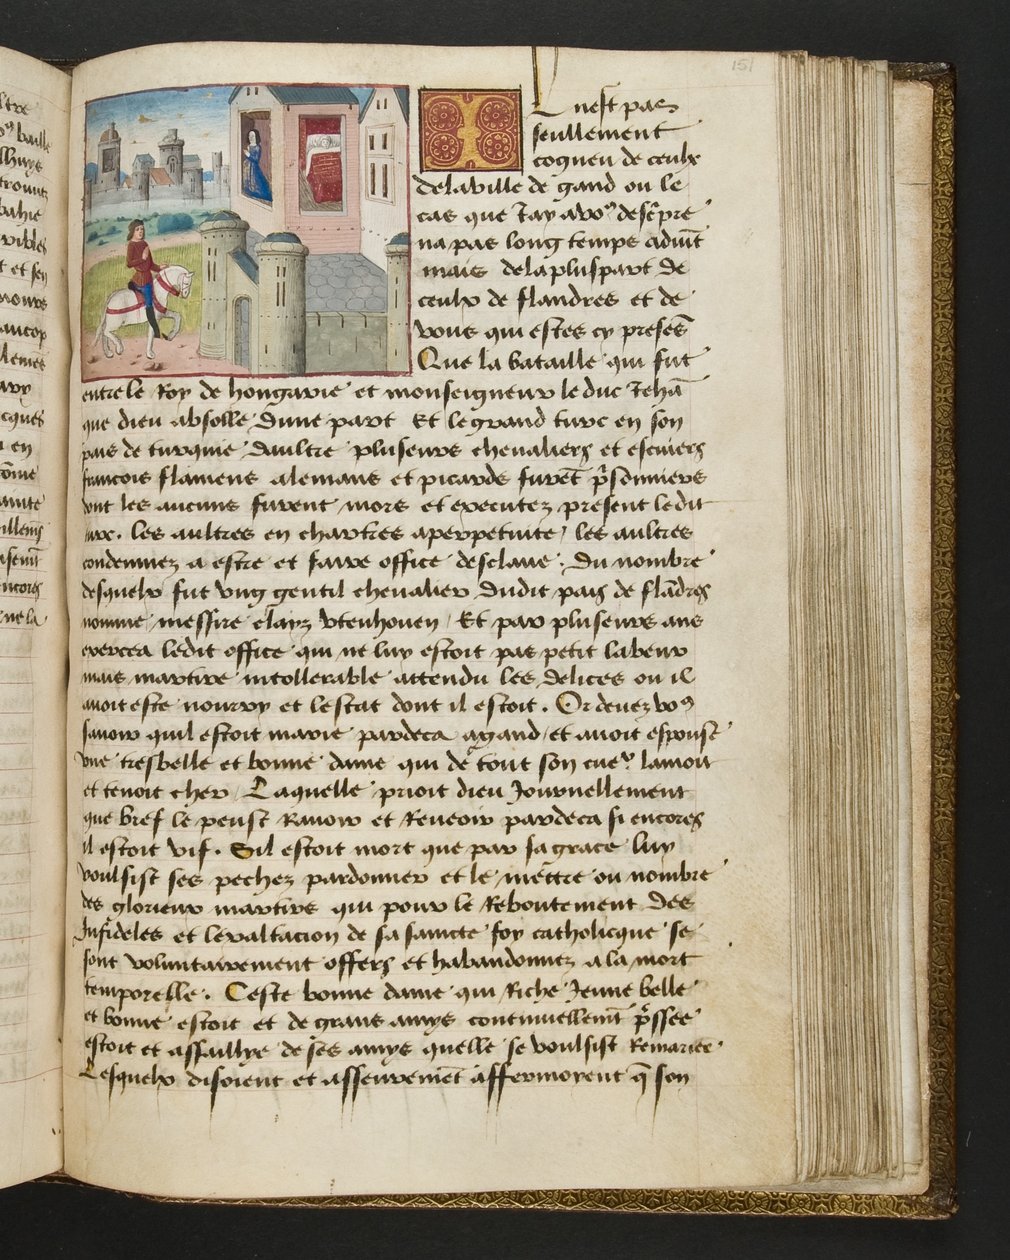 151
I l nest pas
seullement
cogneu de ceulx
de la ville de gand ou le
cas que Jay a voꝰ descpre
na pas long temps advīt
mais de la pluspart de
ceulx de flandres et de
vous qui estes cy presēs
Que la bataille qui fut
entre le Roy de hongarie et monseigneur le duc Jehā
que dieu absolle dune part Et le grand turc en son
pais de turquie daultre pluseurs chevaliers et escuiers
francois flamens alemans et picards furēt p̄sonniers
dont les aucuns furent mors et executez present ledit
turc. les aultres en chartres a perpetuite / les aultres
condennez a estre et faire office desclave. Du nombre
desquelx fut vng gentil chevalier dudit pais de flādres
nomme messire clays vtenhoven / Et par pluseurs ans
exercea ledit office qui ne luy estoit pas petit labeur
mais martire intollerable attendu les delices ou il
avoit este nourry et lestat dont il estoit. Or devez voꝰ
savoir quil estoit marie pardeca a gand / et avoit espouse
vne tresbelle et bonne dame qui de tout son cueꝰ lamoit
et tenoit cher / Laquelle prioit dieu Journellement
que bref le peust Ravoir et Reveoir pardeca si encores
il estoit vif. Sil estoit mort que par sa grace luy
voulsist ses pechez pardonner et le mēttre ou nombre
des glorieux martirs qui pour le Reboutement des
Infideles et lexaltacion de sa saincte foy catholicque se
sont voluntairement offers et habandonnez a la mort
temporelle. Ceste bonne dame qui Riche Jenne belle
et bonne estoit et de grans amys continuellemt̄ p̄ssee
estoit et assaillye de ses amys quelle se voulsist Remarier.
Lesquelx disoient et asseuremēt affermoyent q̄ son